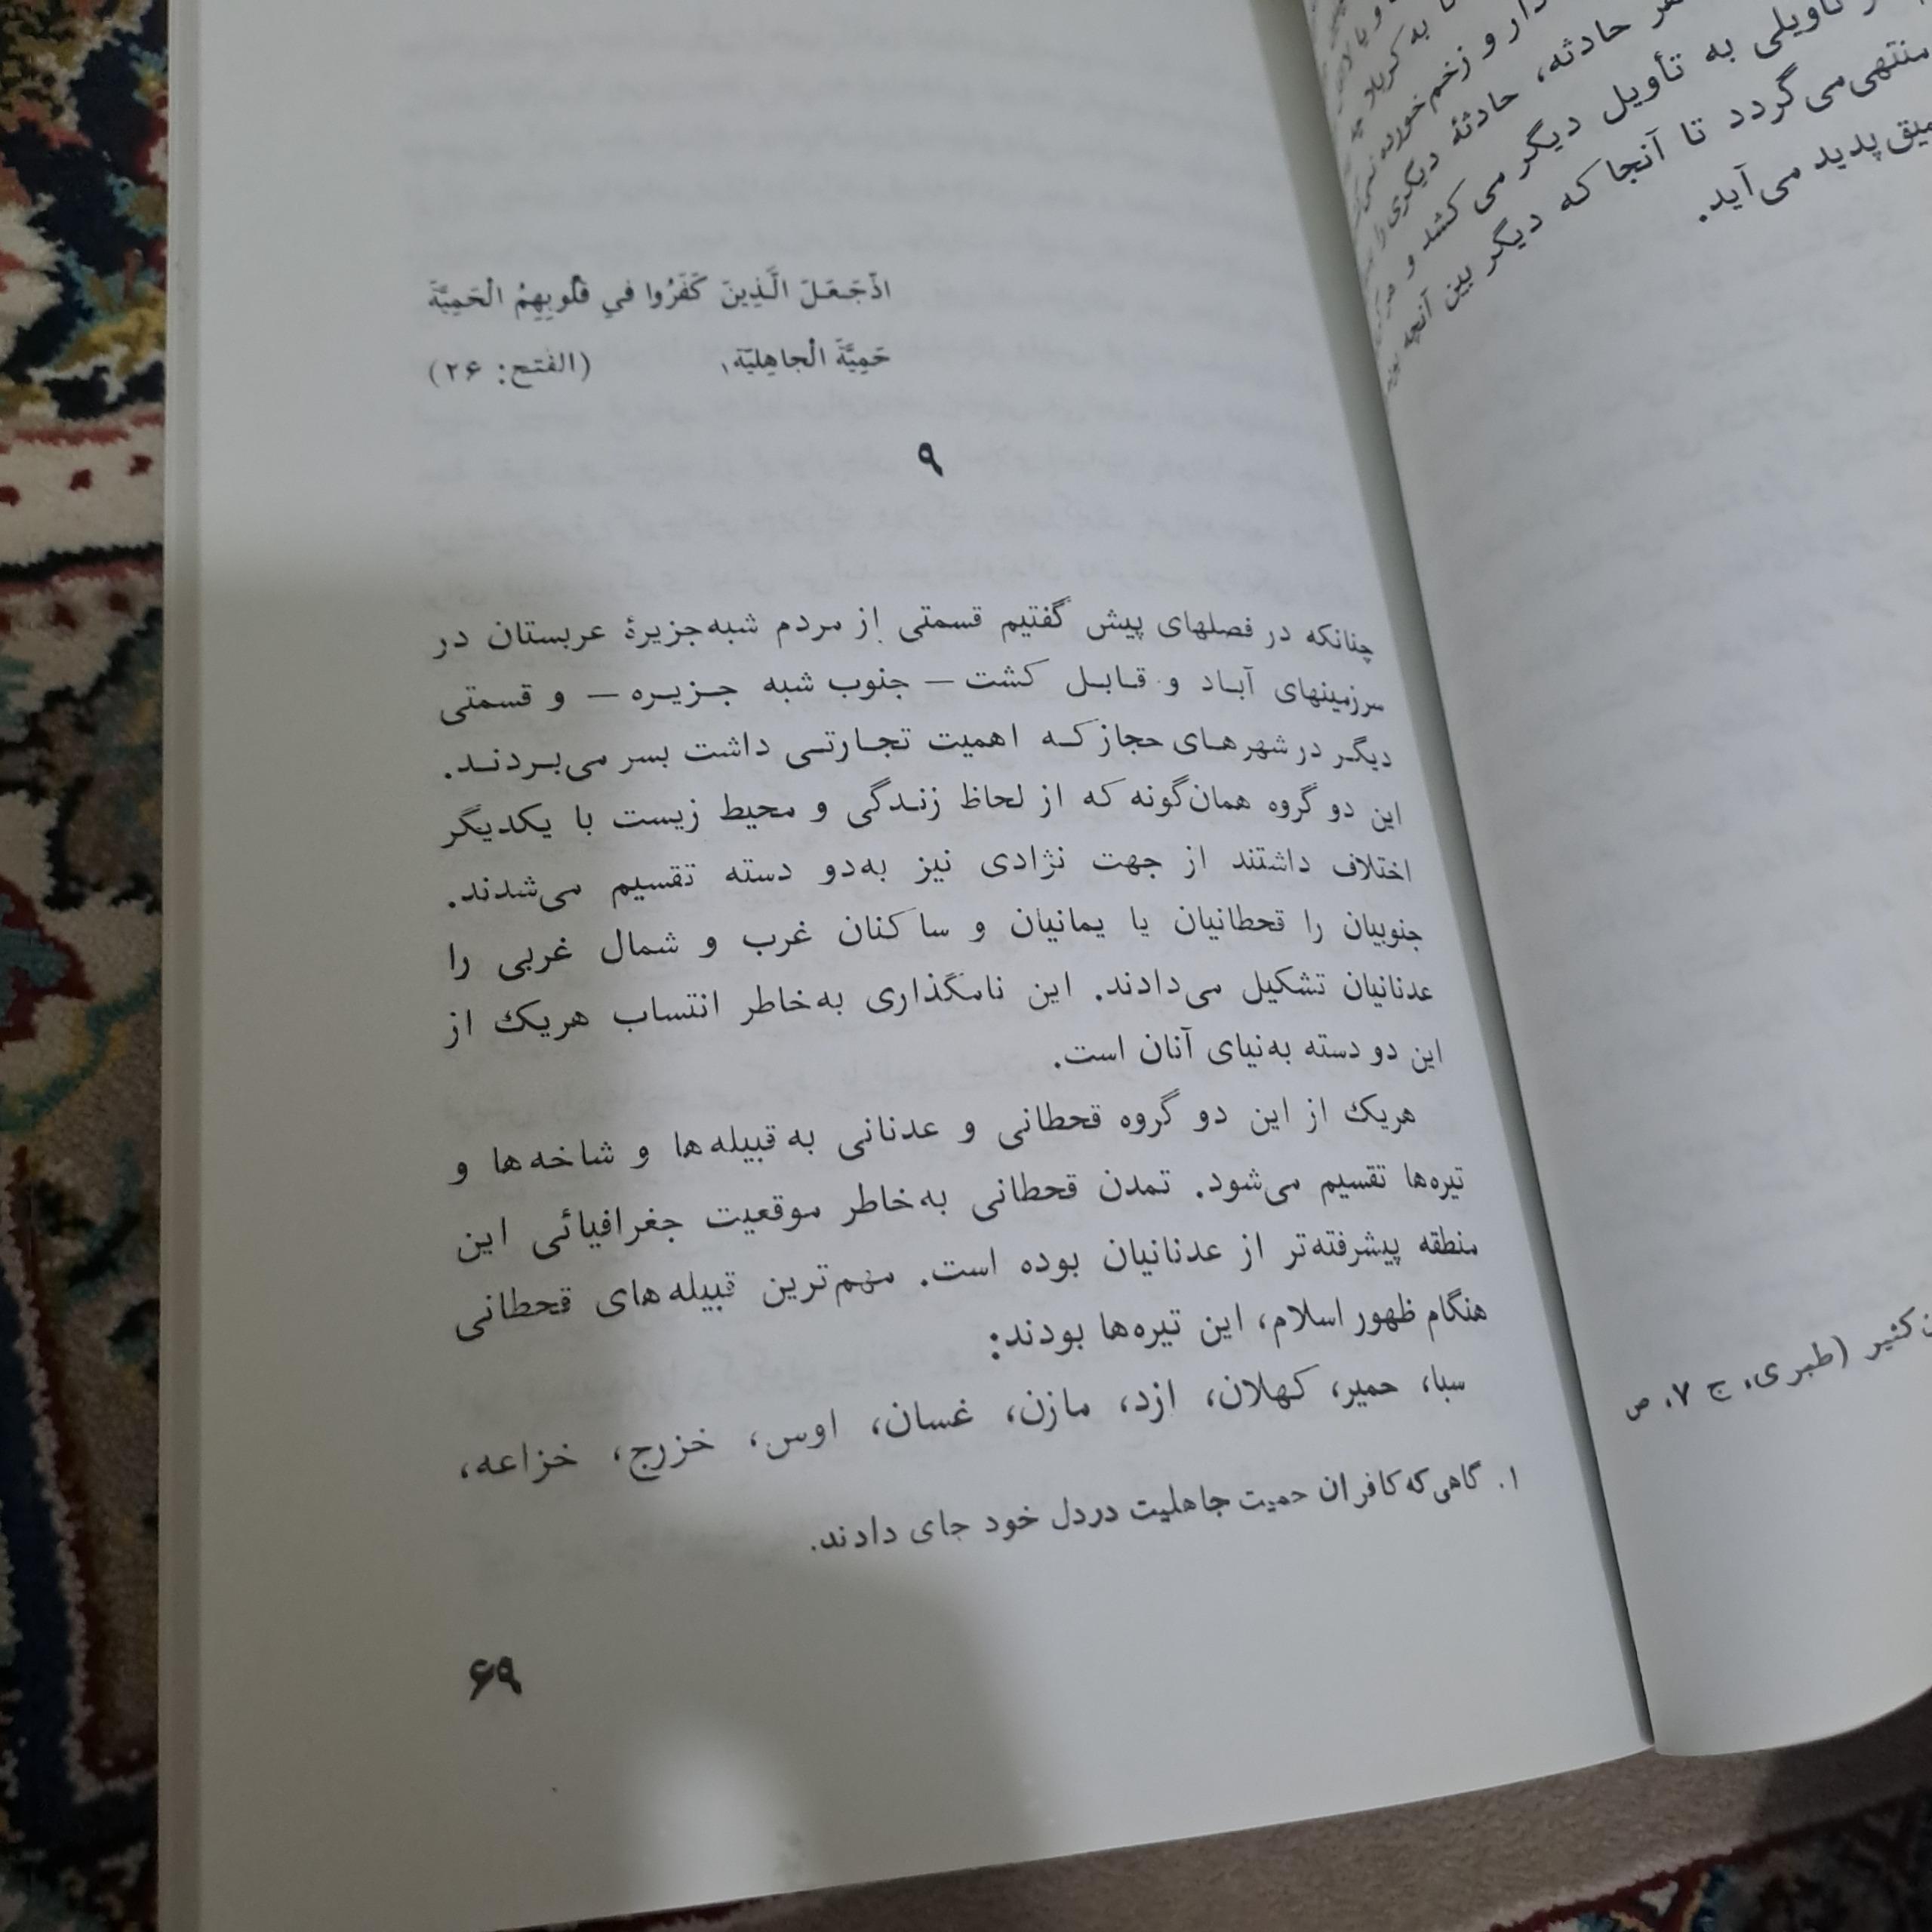 اذْجَعَلَ الَّذِينَ كَفَرُوا في قُلُوبِهِمُ الْحَمِيَّةَ
حَمِيَّةَ الْجاهِلِيّة۱ (الفتح: ۲۶)
۹
چنانکه در فصلهای پیش گفتیم قسمتی از مردم شبه‌جزیرۀ عربستان در
سرزمینهای آباد و قابل کشت – جنوب شبه جزیره – و قسمتی
دیگر در شهرهای حجاز که اهمیت تجارتی داشت بسر می‌بردند.
این دو گروه همان‌گونه که از لحاظ زندگی و محیط زیست با یکدیگر
اختلاف داشتند از جهت نژادی نیز به‌دو دسته تقسیم می‌شدند.
جنوبیان را قحطانیان یا یمانیان و ساکنان غرب و شمال غربی را
عدنانیان تشکیل می‌دادند. این نامگذاری به‌خاطر انتساب هریک از
این دو دسته به‌نیای آنان است.
هریک از این دو گروه قحطانی و عدنانی به قبیله‌ها و شاخه‌ها و
تیره‌ها تقسیم می‌شود. تمدن قحطانی به‌خاطر موقعیت جغرافیائی این
منطقه پیشرفته‌تر از عدنانیان بوده است. مهم‌ترین قبیله‌های قحطانی
هنگام ظهور اسلام، این تیره‌ها بودند:
سبا، حمیر، کهلان، ازد، مازن، غسان، اوس، خزرج، خزاعه،
۱. گاهی‌که کافران حمیت جاهلیت دردل خود جای دادند.
۶۹
دار و زخم‌خورده
هر حادثه، حادثهٔ دیگری را
تأویلی به تأویل دیگر می‌کشد و
منتهی‌می‌گردد تا آنجا که دیگر بین آنچه
پدید می‌آید.
کثیر (طبری، ج ۷، ص